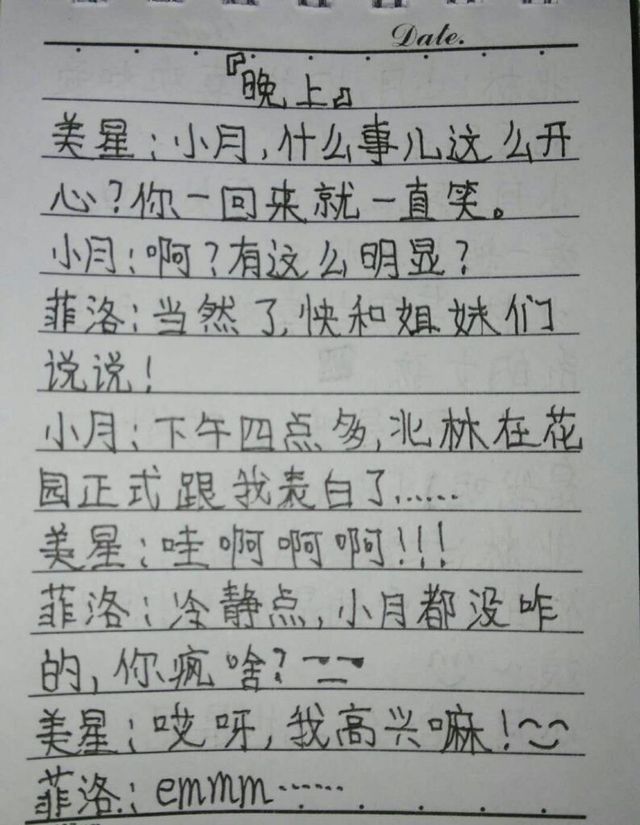 Date.
『晚上』
美星:小月,什么事儿这么开
心?你一回来就一直笑。
小月:啊?有这么明显?
菲洛:当然了,快和姐妹们
说说!
小月:下午四点多,北林在花
园正式跟我表白了……
美星:哇啊啊啊!!!
菲洛:冷静点,小月都没咋
的,你疯啥?
美星:哎呀,我高兴嘛!
菲洛:emmm……